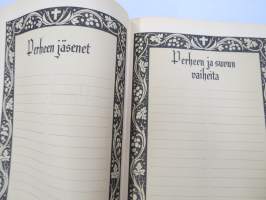 Perheen jäsenet
Perheen ja suvun
vaiheita